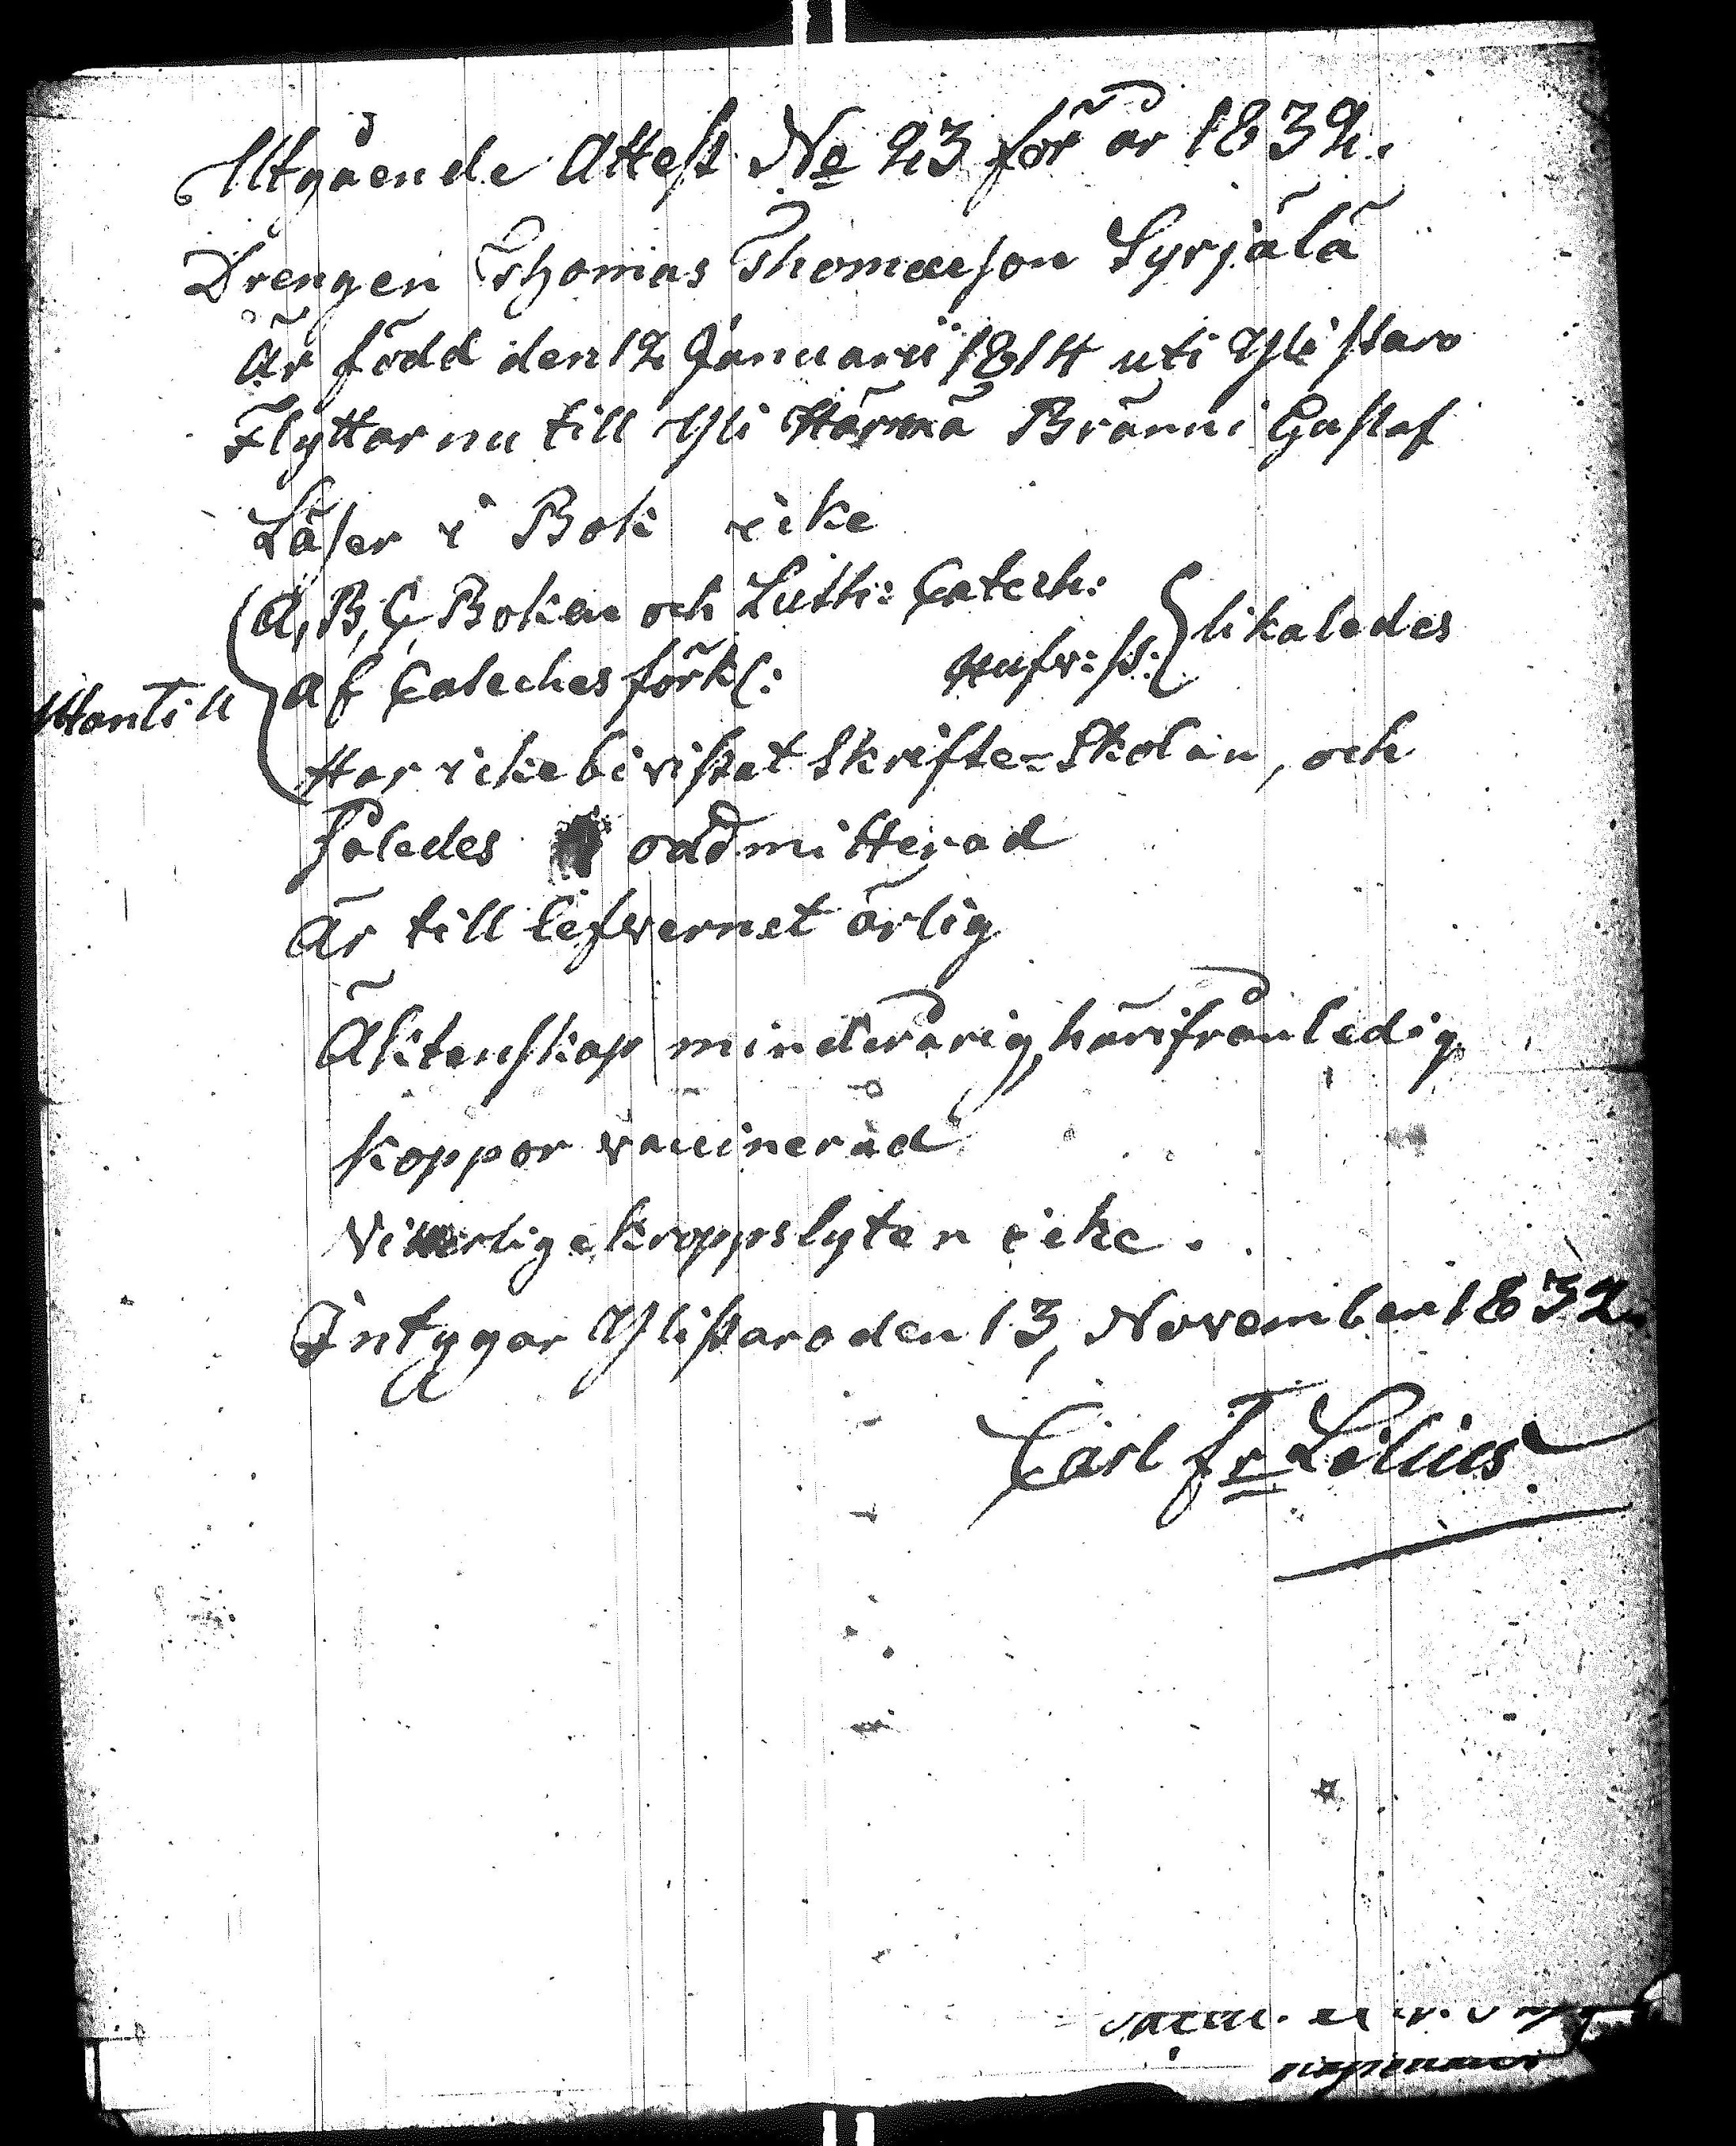 Utgående Attest No 23 för år 1832.
Drengen Thomas Thomasson Syrjälä
Är född den 12 Januarii 1814 uti Ylistaro
Flyttar nu till Yli Härmä Bränni Gustaf
Läser i Bok icke
A, B, C, Boken och Luth: Catech:
likaledes
Af Catechesförkl: Hufw: st:
Utantill
Har icke bivistat Skrifte-Skolan, och
således oadmitterad
Är till lefwernet ärlig
Äktenskap minderårig, härifrån ledig
Koppor vaccinerad
kroppslyten icke.
Intygar Ylistaro den 13, November 1832.
Carl Fr Lilius